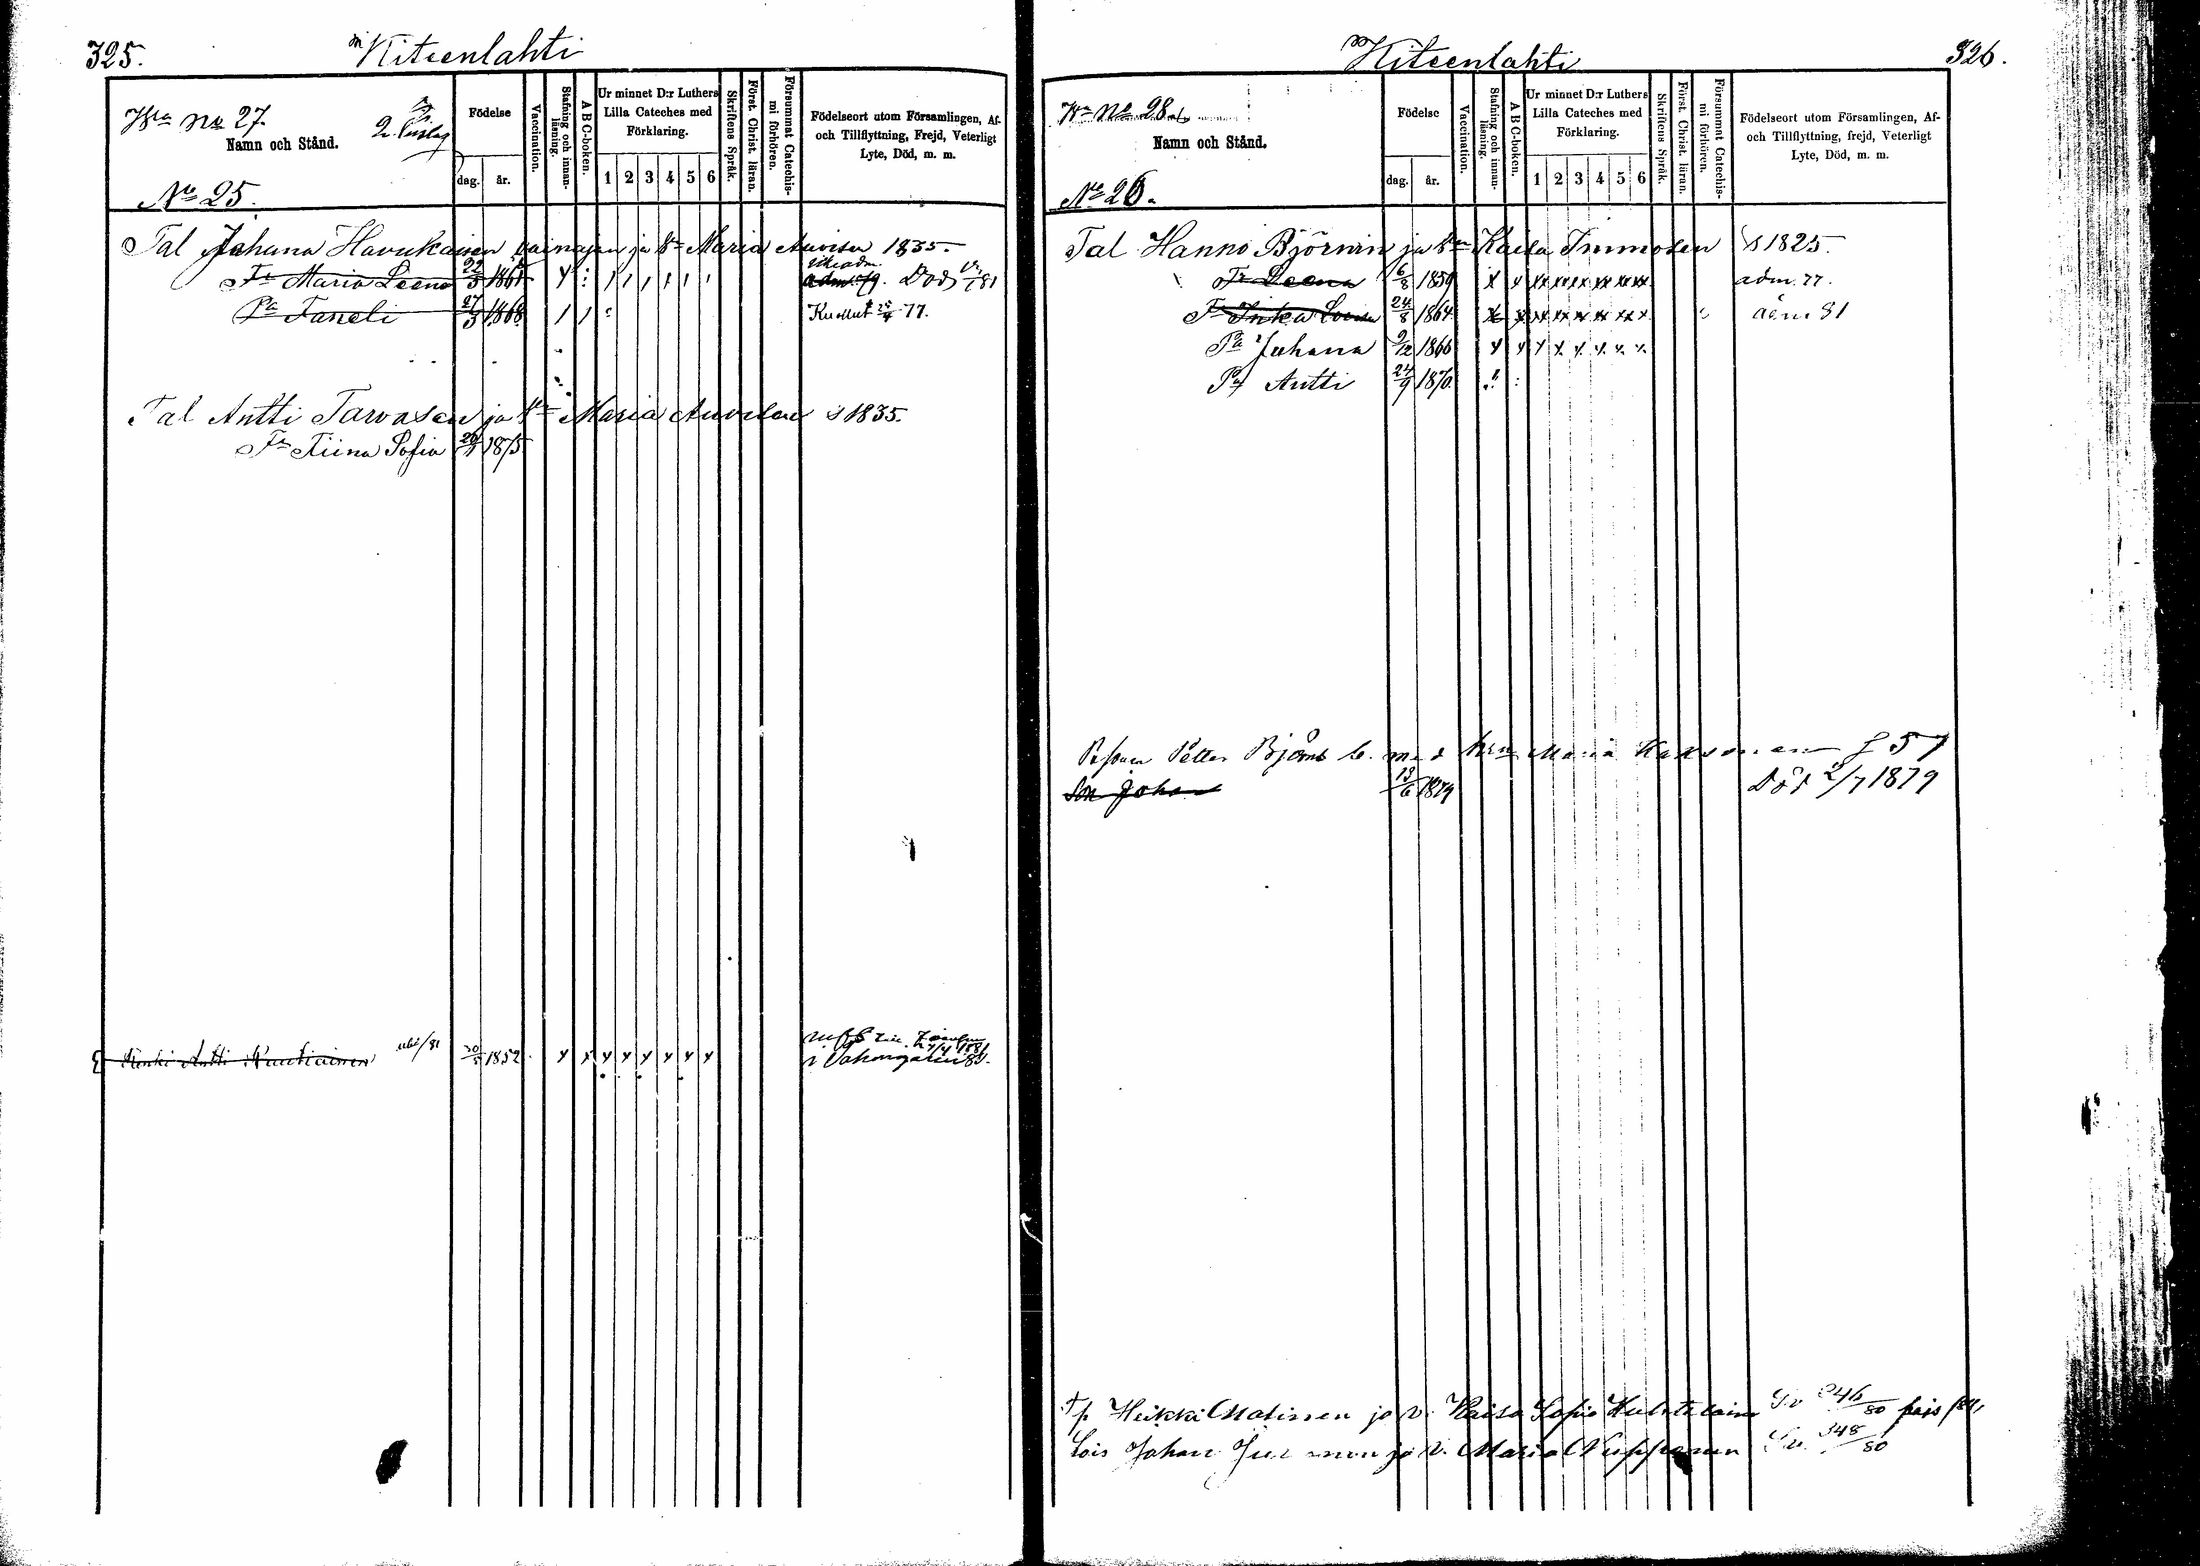 325.
Kiteenlahti
Hra No 27.
Namn och Stånd.
No 25.
Födelse
dag.
år.
Vaccination.
Stafning och innanläsning.
A B C-boken.
Ur minnet D:r Luthers Lilla Cateches med Förklaring.
1 2 3 4 5 6
Skriftens Språk.
Först. Christ. läran.
Försummat Catechismi förhören.
Födelseort utom Församlingen, Af- och Tillflyttning, Frejd, Veterligt Lyte, Död, m. m.
Tal Juhana Havukainen vainajan ja Vr Maria Auvisen 1835
Tr Maria Leena 22/3 1861 adm 79. Död 1/81
Pa Taneli 27/3 1868 Kuollut 25/4 77.
Tal Antti Tarvasen ja Vr Maria Auvisen s 1835.
Tr Tiina Sofia 1875
Antti 1852
326.
Kiteenlahti
Hra No 28
Namn och Stånd.
No 26.
Födelse
dag.
år.
Vaccination.
Stafning och innanläsning.
A B C-boken.
Ur minnet D:r Luthers Lilla Cateches med Förklaring.
1 2 3 4 5 6
Skriftens Språk.
Först. Christ. läran.
Försummat Catechismi förhören.
Födelseort utom Församlingen, Af- och Tillflyttning, frejd, Veterligt Lyte, Död, m. m.
Tal Hanno Björnin ja Vr Kaisa Immosen s 1825.
Tr Leena 6/8 1859 adm. 77.
Tr Inka Lovisa 24/8 1864 adm 81
Pa Juhana 9/12 1866
Pa Antti 24/9 1870
Petter Björn med hru Maria f 57
Son Johan 13/6 1879 Död 2/7 1879
Heikki Matinen ja v. Kaisa Sofia S.v 246/80
Lois Johan ja v. Maria Nuppenen S.v. 348/80